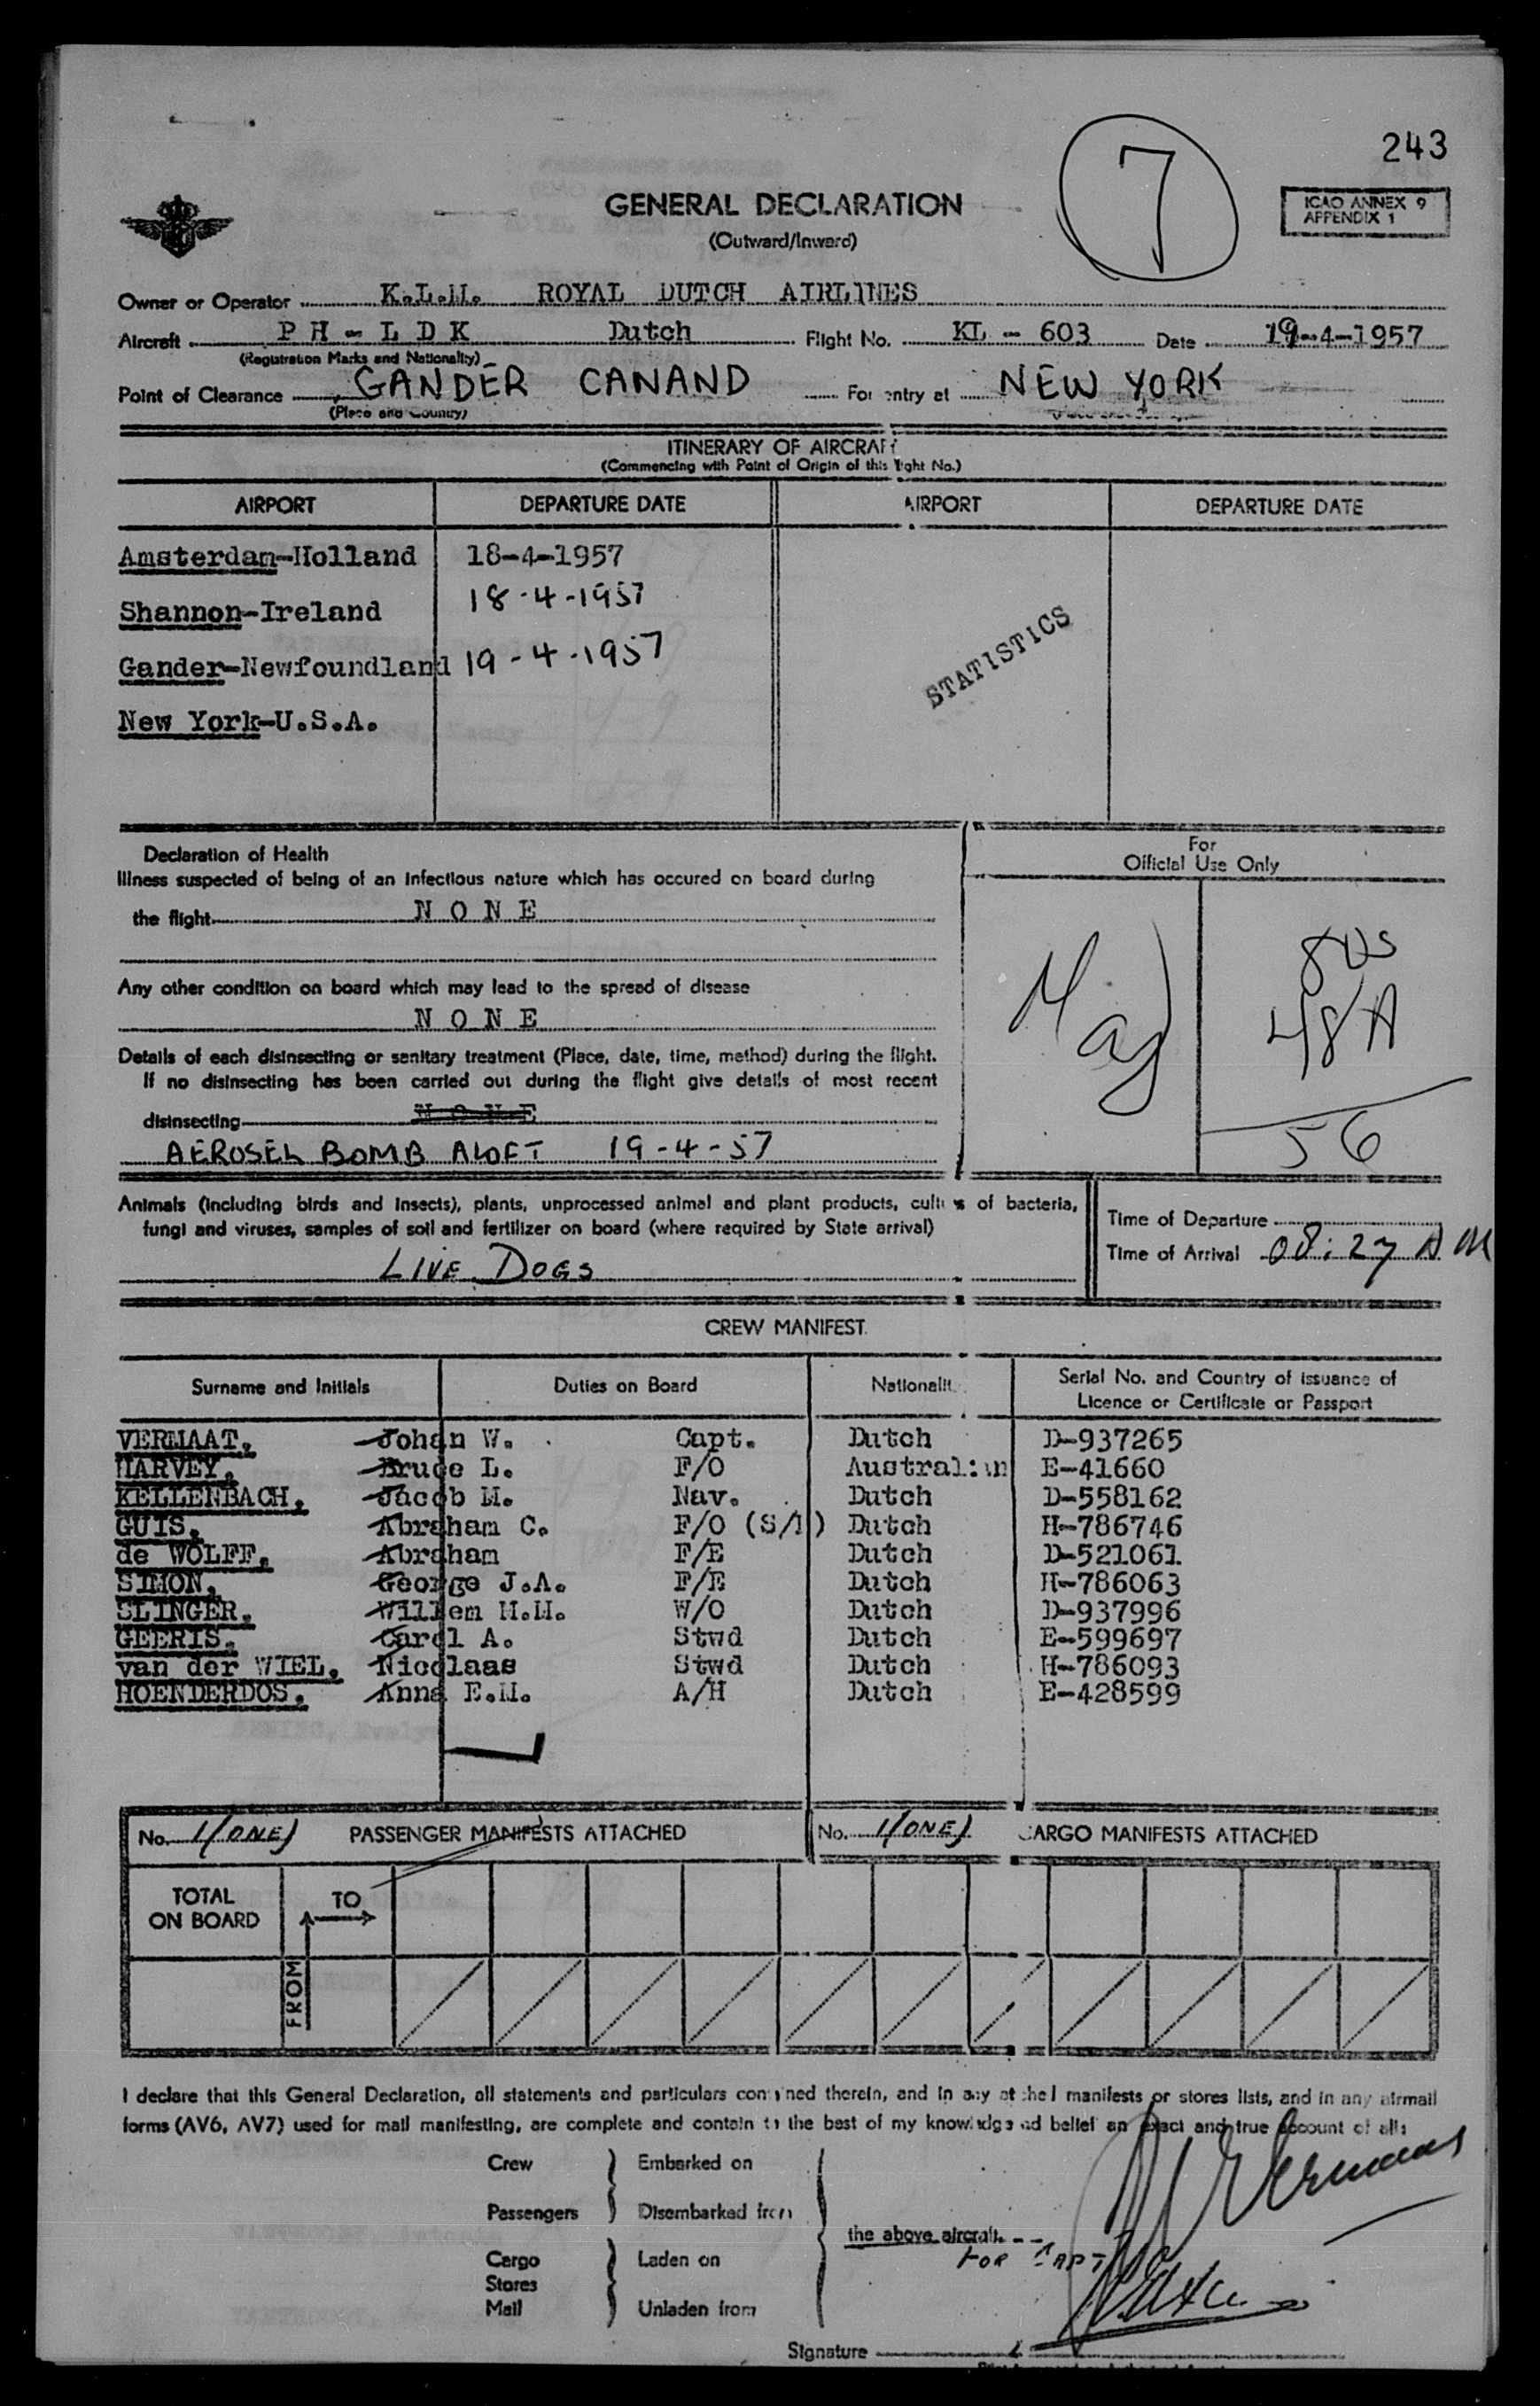 7
243
GENERAL DECLARATION
(Outward/Inward)
ICAO ANNEX 9
APPENDIX 1
Owner or Operator K.L.M. ROYAL DUTCH AIRLINES
Aircraft PH-LDK Dutch Flight No. KL - 603 Date 19-4-1957
(Registration Marks and Nationality)
Point of Clearance GANDER CANAND For entry at NEW YORK
(Place and Country)
ITINERARY OF AIRCRAFT
(Commencing with Point of Origin of this light No.)
AIRPORT DEPARTURE DATE AIRPORT DEPARTURE DATE
Amsterdam-Holland 18-4-1957
Shannon-Ireland 18-4-1957
Gander-Newfoundland 19-4-1957
New York-U.S.A.
STATISTICS
Declaration of Health
Illness suspected of being of an infectious nature which has occured on board during
the flight NONE
Any other condition on board which may lead to the spread of disease
NONE
Details of each disinsecting or sanitary treatment (Place, date, time, method) during the flight.
If no disinsecting has been carried out during the flight give details of most recent
disinsecting NONE
AEROSEL BOMB ALOFT 19-4-57
For
Official Use Only
8 US
48 A
56
Animals (including birds and insects), plants, unprocessed animal and plant products, cultu s of bacteria,
fungi and viruses, samples of soil and fertilizer on board (where required by State arrival)
LIVE DOGS
Time of Departure
Time of Arrival 08:27 AM
CREW MANIFEST
Surname and Initials Duties on Board Nationalit Serial No. and Country of issuance of
Licence or Certificate or Passport
VERMAAT, Johan W. Capt. Dutch D-937265
HARVEY, Bruce L. F/O Australian E-41660
KELLENBACH, Jacob M. Nav. Dutch D-558162
GUIS, Abraham C. F/O (S/N) Dutch H-786746
de WOLFF, Abraham F/E Dutch D-521061
SIMON, George J.A. F/E Dutch H-786063
SLINGER, Willem H.M. W/O Dutch D-937996
GEERIS, Carel A. Stwd Dutch E-599697
van der WIEL, Nicolaas Stwd Dutch H-786093
HOENDERDOS, Anna E.M. A/H Dutch E-428599
No. 1(ONE) PASSENGER MANIFESTS ATTACHED No. 1(ONE) CARGO MANIFESTS ATTACHED
TOTAL
ON BOARD
TO
FROM
I declare that this General Declaration, all statements and particulars con ned therein, and in any manifests or stores lists, and in any airmail
forms (AV6, AV7) used for mail manifesting, are complete and contain to the best of my knowledge belief an exact and true account of all:
Crew Embarked on
Passengers Disembarked from
the above aircraft.
FOR CAPT
Cargo Laden on
Stores
Mail Unladen from
Signature